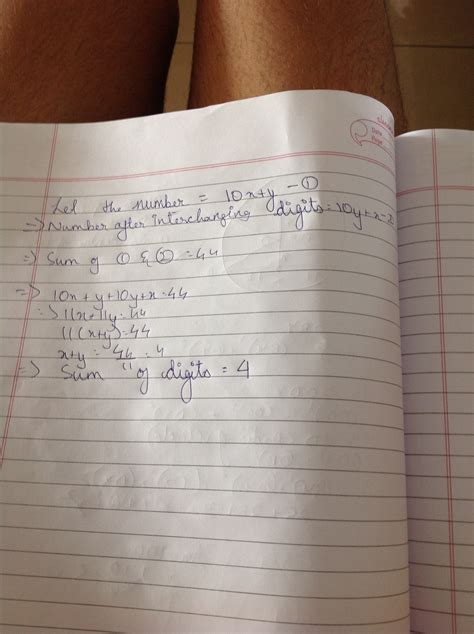 Date
Page
Let the number = 10x+y - ①
=> Number after interchanging digits = 10y+x - ②
=> Sum of ① & ② = 44
=> 10x+y+10y+x = 44
=> 11x+11y = 44
11(x+y) = 44
x+y = 44/11 = 4
=> Sum of digits = 4